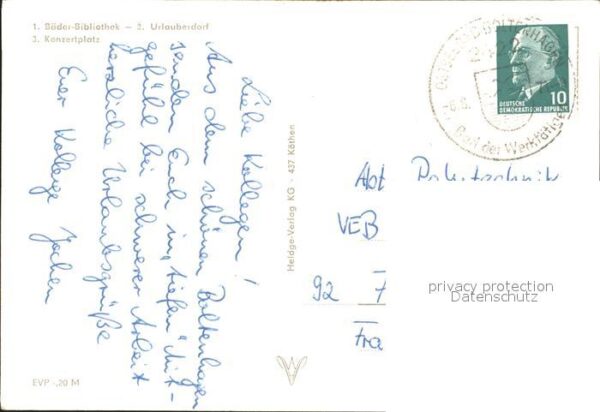 1. Bäder-Bibliothek – 2. Urlauberdorf
3. Konzertplatz
Liebe Kollegen!
Aus dem schönen Boltenhagen
senden Euch im „tiefen" Mit-
gefühl bei schwerer Arbeit
herzliche Urlaubsgrüße
Euer Kollege Jochen
Heldge-Verlag KG · 437 Köthen
EVP -,20 M
BOLTENHAGEN
Bad der Werktätigen
10
DEUTSCHE
DEMOKRATISCHE REPUBLIK
Abt
VEB
92
Fra
privacy protection
Datenschutz